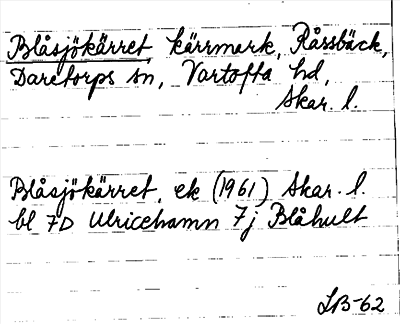 Blåsjökärret, kärrmark, Råssbäck,
Daretorps sn, Vartofta hd,
Skar. l.
Blåsjökärret, ek (1961) Skar. l.
bl 7D Ulricehamn 7j Blåhult
LB-62